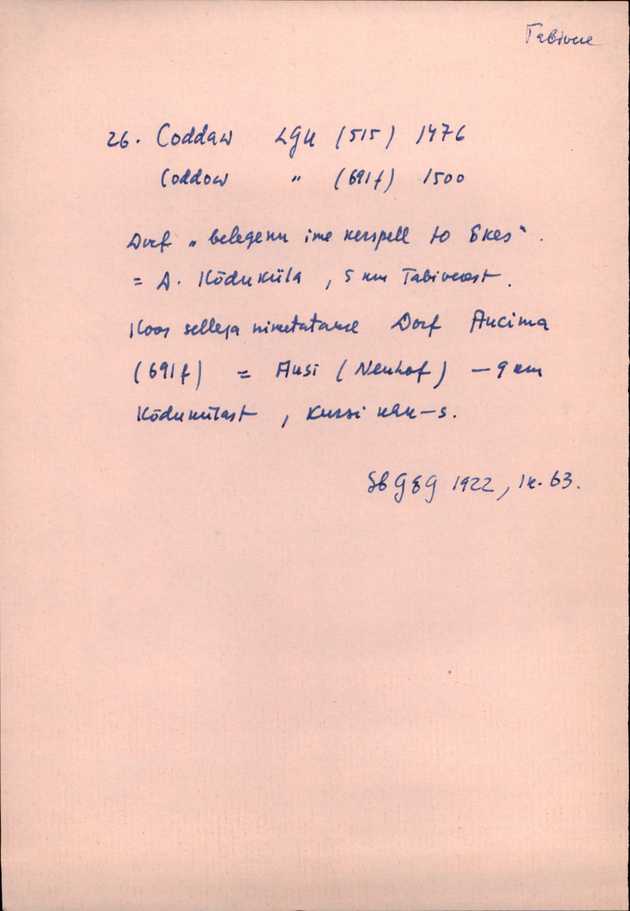 Tabivere
26. Coddaw LGU (515) 1476
Coddow " (691f) 1500
Dorf „belegenn ime kerspell to Ekes".
= A. Kõduküla, 5 km Tabiverest.
Koos sellega nimetatakse Dorf Aucima
(691f) = Ausi (Neuhof) – 9 km
Kõdukülast, Kursi khk-s.
Sb GEG 1922, lk. 63.